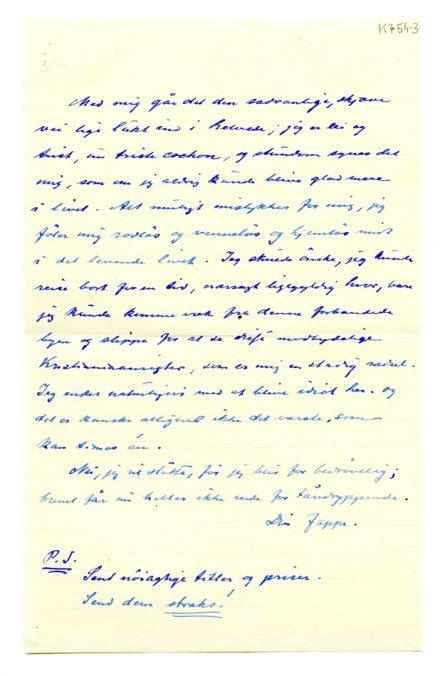 K754-3
Med mig går det den sedvanlige, skjæve
vei lige lukt ind i helvede; jeg er lei og
trist, un triste cochon, og stundom synes det
mig, som om jeg aldrig kunde blive glad mere
i livet. Alt muligt mislykkes for mig, jeg
føler mig rodløs og venneløs og hjemløs midt
i det levende livet. Jeg skulde ønske, jeg kunde
reise bort for en tid, ligegyldig hvor, bare
jeg kunde komme væk fra denne forbandede
byen og slippe for at se disse modbydelige
Kristianiaansigter, som er mig en stadig
Jeg ender naturligvis med at blive idiot her. og
det er kanske alligevel ikke det værste, som
kan times én.
Nei, jeg vil slutte, for jeg blir for bedrøvelig;
brevet får nu heller ikke ende for tåredryppende.
Din Jappe.
P.S.
Send nöiagtige titler og priser.
Send dem straks!